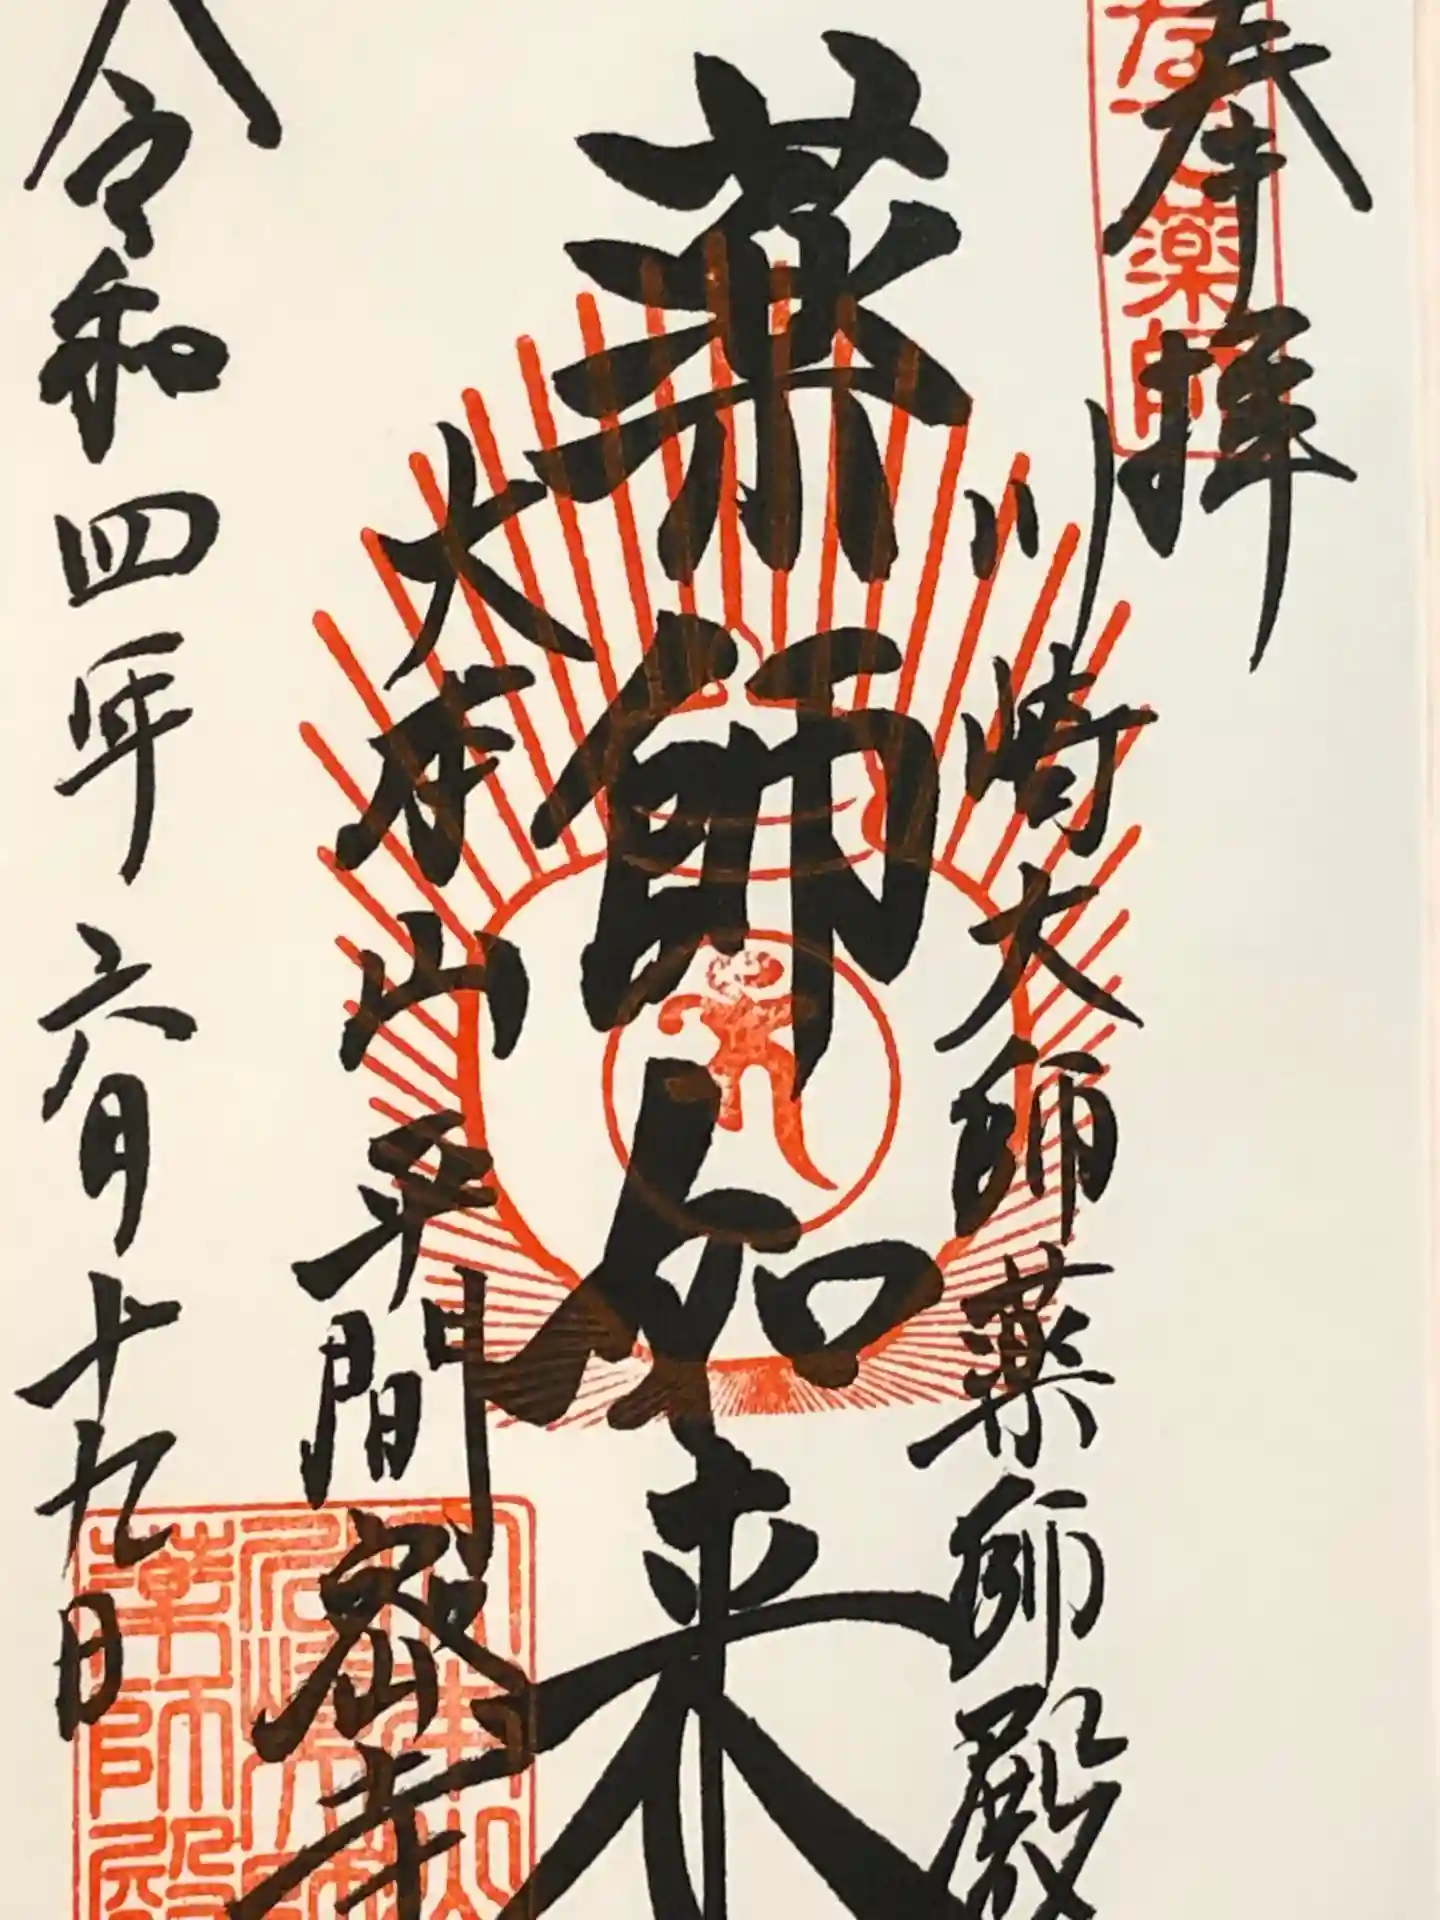 奉拝
川崎大師薬師殿
薬師如来
大本山平間密寺
令和四年六月十九日
薬師
薬師殿